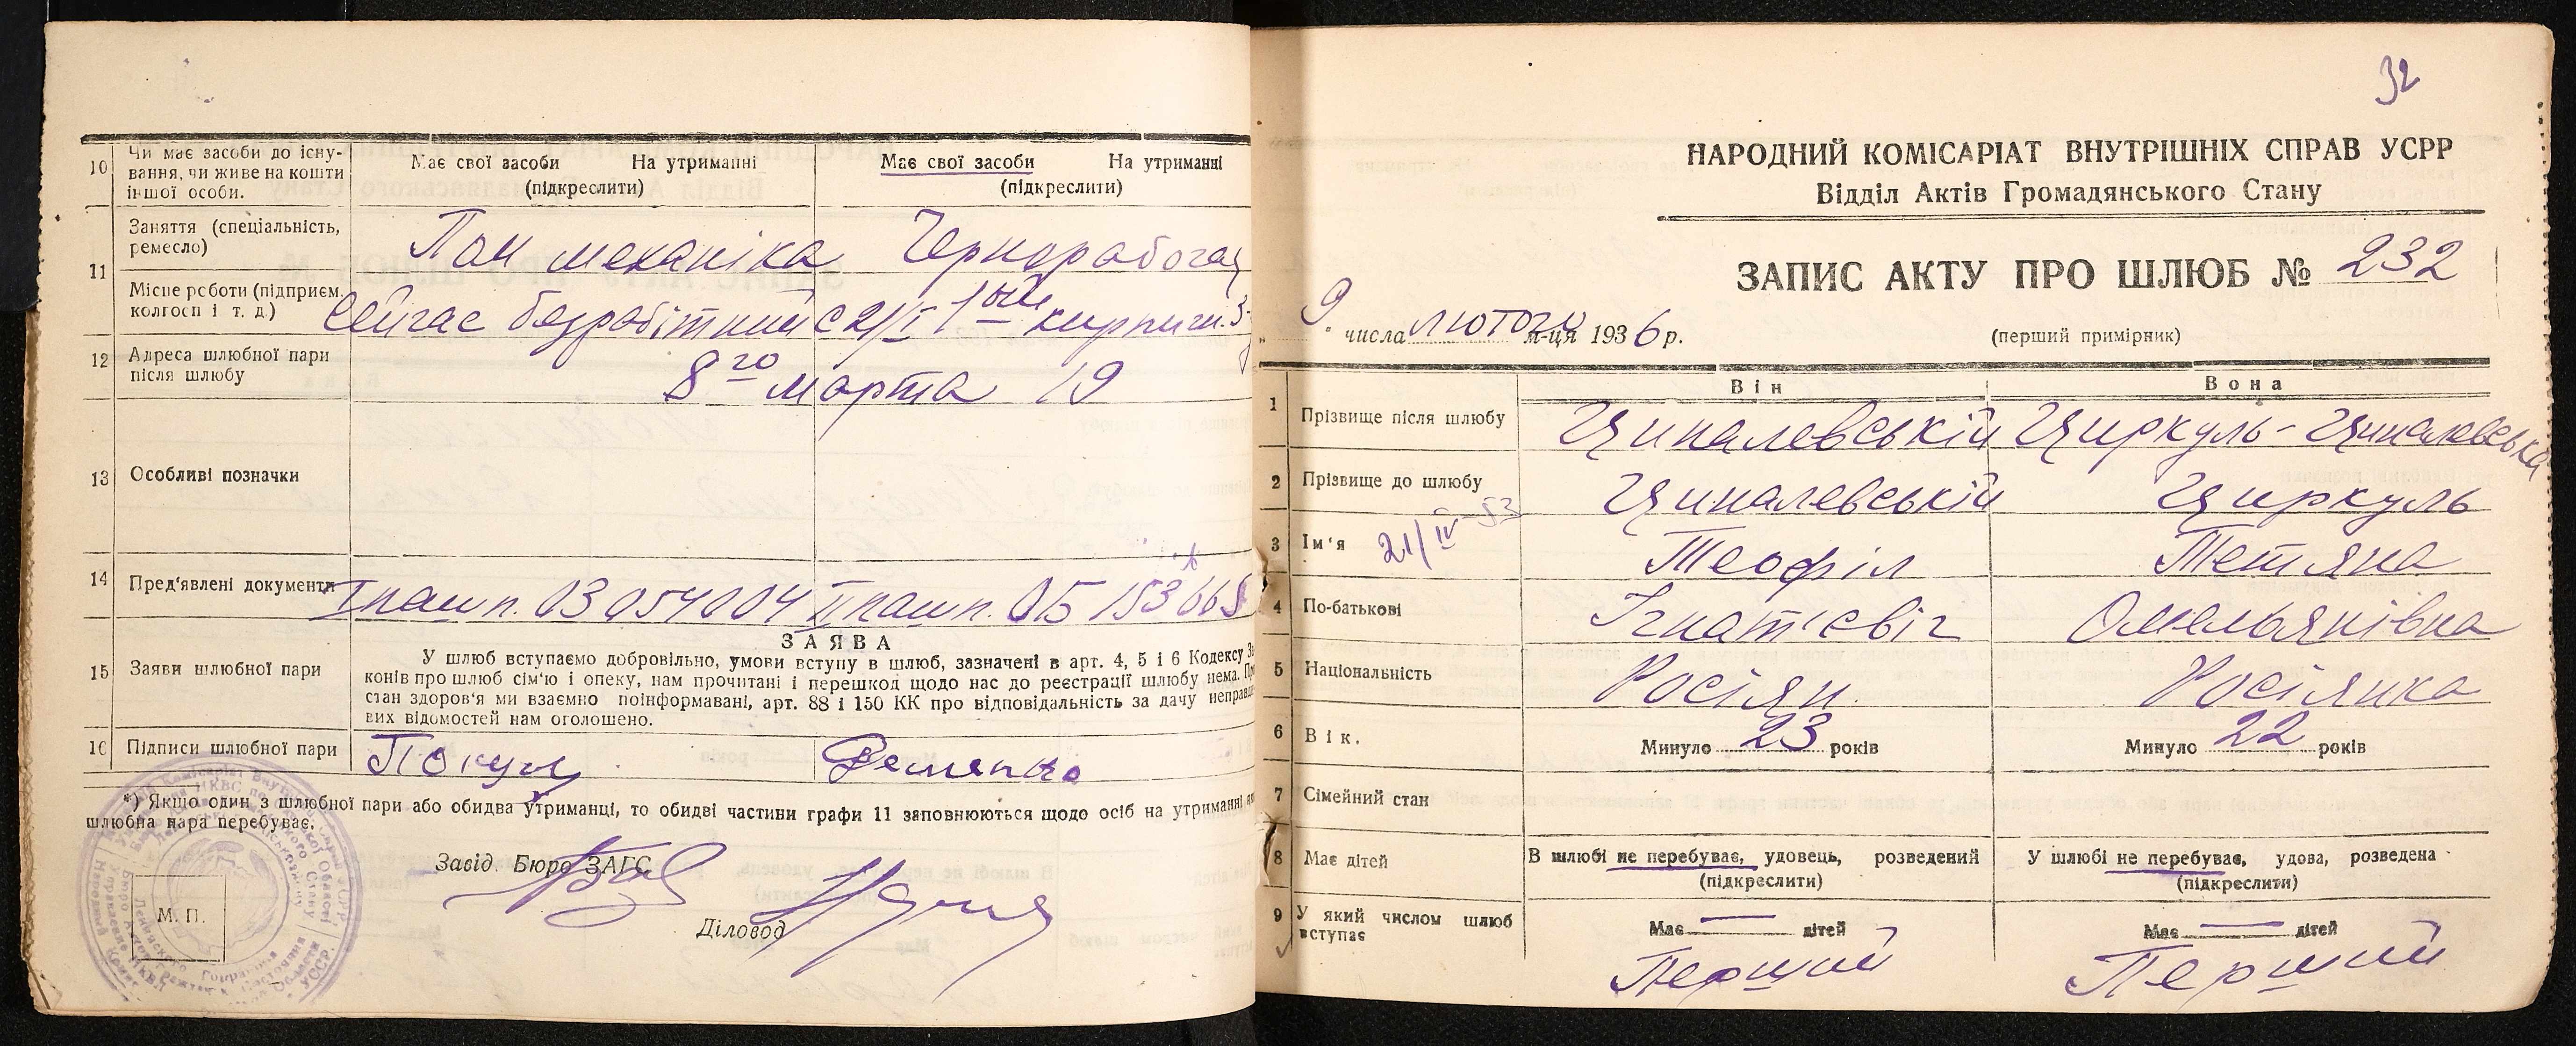 10 Чи має засоби до існу-
вання, чи живе на кошти
іншої особи.
Має свої засоби На утриманні
(підкреслити)
Має свої засоби На утриманні
(підкреслити)
11 Заняття (спеціальність,
ремесло)
Пом механіка
Чернорабочая
Місце роботи (підприєм.
колгосп і т. д.)
Сейчас безработній
с 21/I 1ый кирпичн. з-
12 Адреса шлюбної пари
після шлюбу
8го марта 19
13 Особливі позначки
14 Пред'явлені документи
I пашп. ОЗ 054004 II пашп. ОБ 153668
15 Заяви шлюбної пари
ЗАЯВА
У шлюб вступаємо добровільно, умови вступу в шлюб, зазначені в арт. 4, 5 і 6 Кодексу За
конів про шлюб сім'ю і опеку, нам прочитані і перешкод щодо нас до реєстрації шлюбу нема. Про
стан здоров'я ми взаємно поінформавані, арт. 88 і 150 КК про відповідальність за дачу неправди
вих відомостей нам оголошено.
16 Підписи шлюбної пари
*) Якщо один з шлюбної пари або обидва утриманці, то обидві частини графи 11 заповнюються щодо осіб на утриманні як
шлюбна пара перебуває.
Завід. Бюро ЗАГС
Діловод
М. П.
32
НАРОДНИЙ КОМІСАРІАТ ВНУТРІШНІХ СПРАВ УСРР
Відділ Актів Громадянського Стану
ЗАПИС АКТУ ПРО ШЛЮБ № 232
9 числа лютого м-ця 1936 р.
(перший примірник)
Він Вона
1 Прізвище після шлюбу Ципалевській Циркуль-Ципалевська
2 Прізвище до шлюбу Ципалевській Циркуль
21/IV-53
3 Ім'я Теофіл Тетяна
4 По-батькові Ігнат'євіч Омельянівна
5 Національність Росіян. Росіянка
6 Вік. Минуло 23 років Минуло 22 років
7 Сімейний стан
8 Має дітей
В шлюбі не перебуває, удовець, розведений
(підкреслити)
У шлюбі не перебуває, удова, розведена
(підкреслити)
9 У який числом шлюб
вступає
Має — дітей Має — дітей
Перший Перший